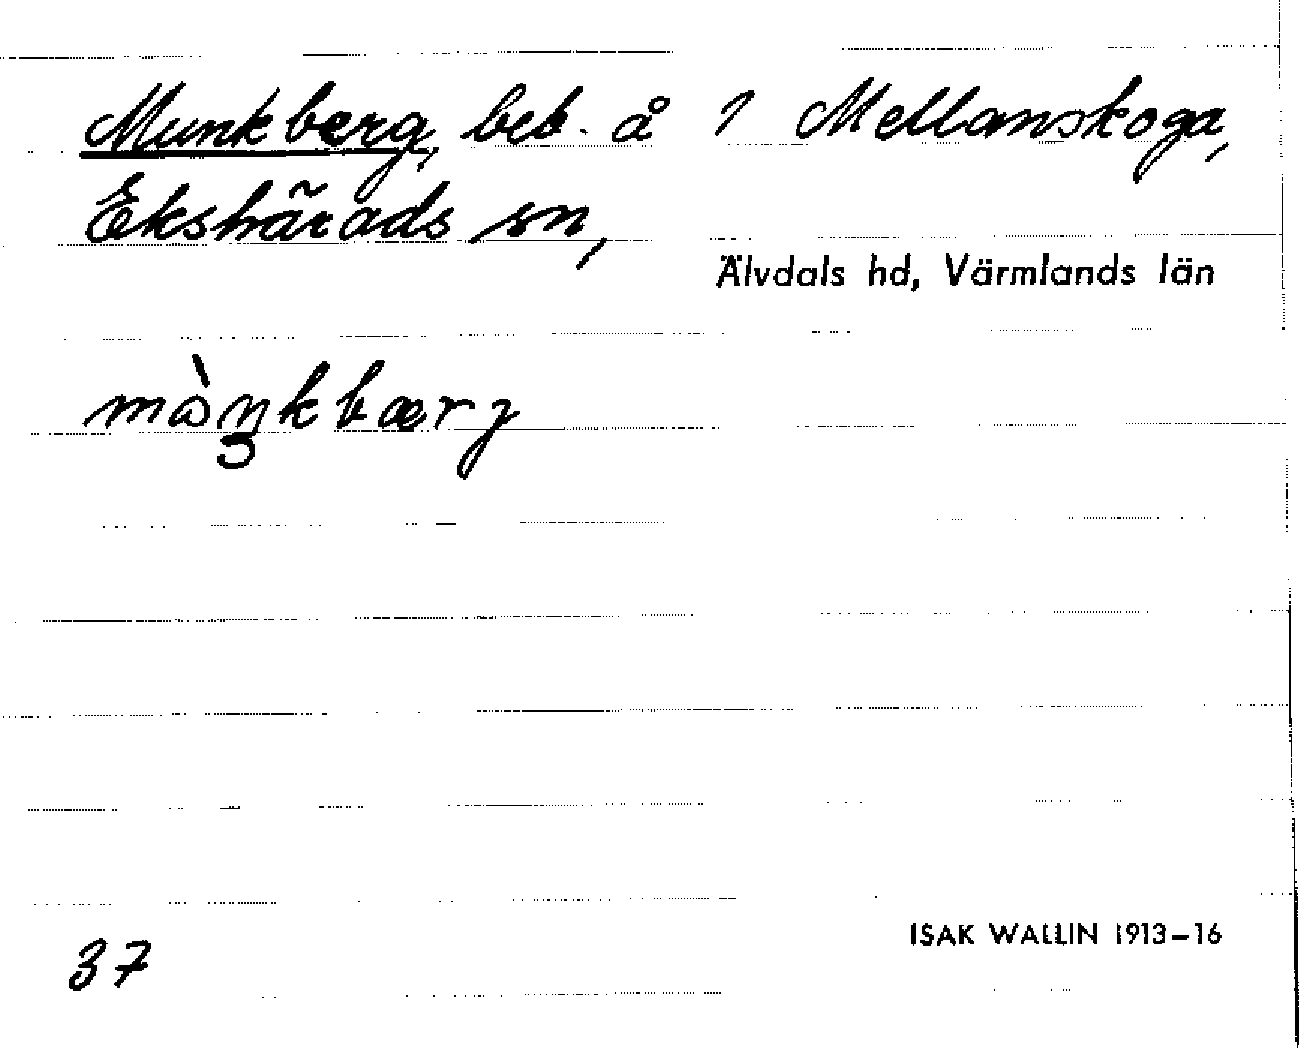 Munkberg, beb. å 1 Mellanskoga,
Ekshärads sn,
Älvdals hd, Värmlands län
mὼŋkbærj
37
ISAK WALLIN 1913–16